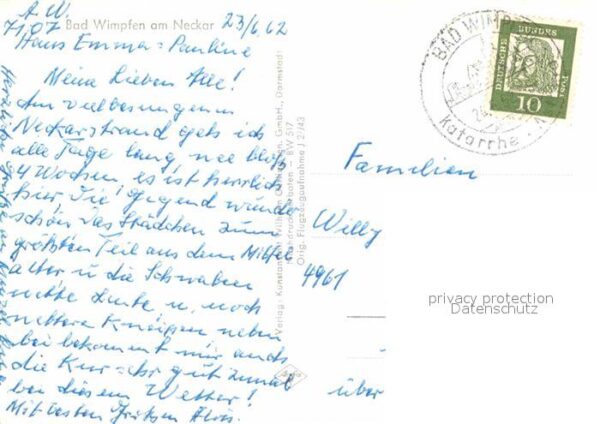 A. W.
7107 Bad Wimpfen am Neckar 23/6.62
Haus Emma-Pauline
Meine lieben Alle!
Am vielbesungenen
Neckarstrand geh ich
alle Tage lang nee bloß
4 Wochen, es ist herrlich
hier, die Gegend wunder
schön das Städtchen zum
größten Teil aus dem Mittel
alter u die Schwaben
nette Leute u. noch
nettere Kneipen neben
bei bekommt mir auch
die Kur sehr gut zumal
bei diesem Wetter!
Mit besten Grüßen Alois.
Verlag: Kunstanstalt GmbH., Darmstadt
BW 517
Orig. Flugzeugaufnahme J 2/43
BAD WIMPFEN
Katarrhe
DEUTSCHE BUNDESPOST
10
Familien
Willy
4961
über
privacy protection
Datenschutz